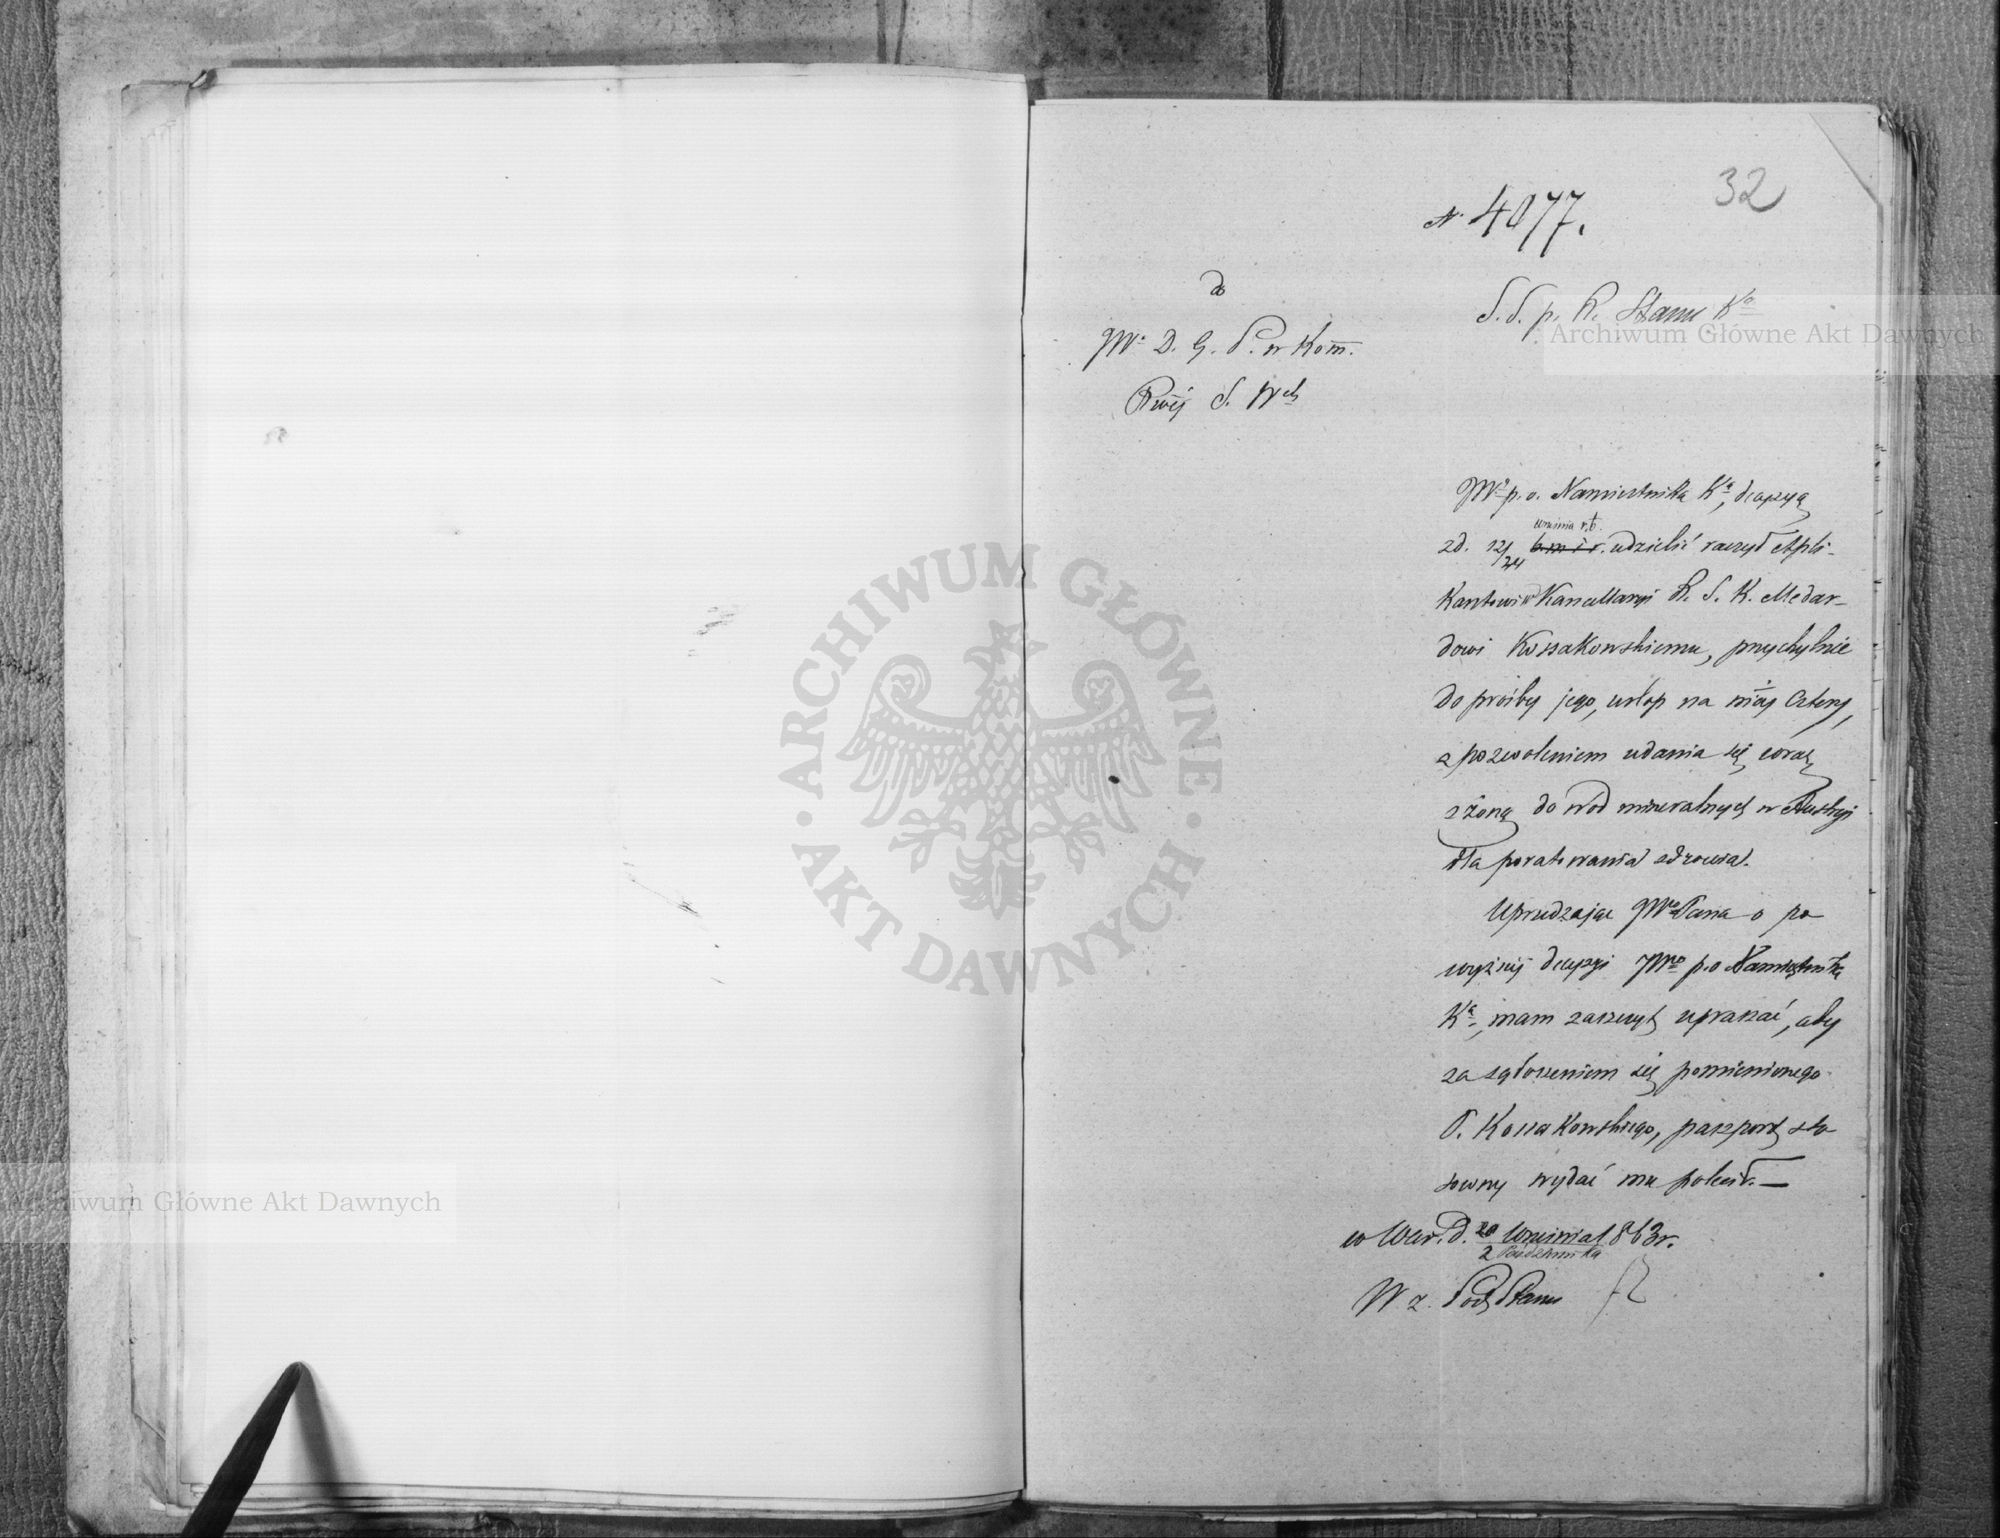 32
N. 4077.
S. S. p. R. Stanu Ka
do
JWo D. G. P. w Kom.
Rwéj S. Wch
JWy p. o. Namiestnika Ka, decyzyą
z d. 12/24 września r. b. udzielić raczył Apli-
kantowi w Kancellaryi R. S. K. Medar-
dowi Kossakowskiemu, przychylnie
do prośby jego, urlop na miesy cztery,
z pozwoleniem udania się wraz
z żoną do wód mineralnych w Austryi
dla poratowania zdrowia.
Uprzedzając JWo Pana o po-
wyższéj decyzyi JWo p. o Namiestnika
Ka, mam zaszczyt upraszać, aby
za zgłoszeniem się pomienionego
P. Kossakowskiego, paszport sto-
sowny wydać mu polecił. —
w War. d. 20 Września 1863 r.
2 Października
W z. Pod Stanu
ARCHIWUM GŁÓWNE · AKT DAWNYCH ·
Archiwum Główne Akt Dawnych
Archiwum Główne Akt Dawnych